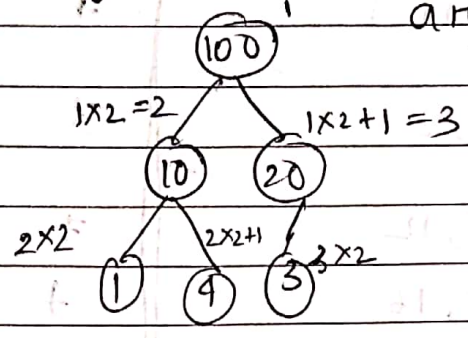 an
100
1x2=2
1x2+1=3
10
20
2x2
2x2+1
3x2
1
4
3